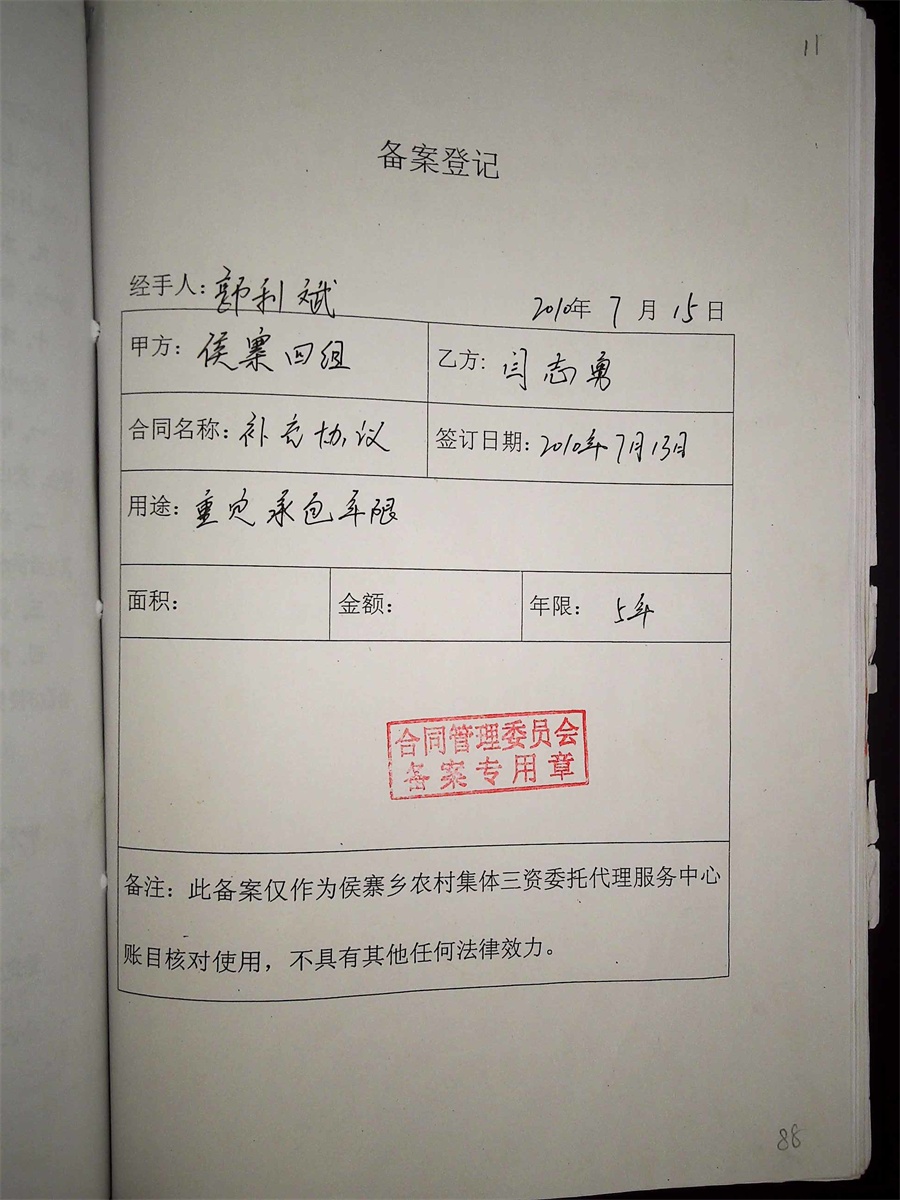 11
备案登记
经手人：郭利斌 2010年 7 月 15 日
甲方：侯寨四组 乙方：闫志勇
合同名称：补充协议 签订日期：2010年7月13日
用途：重定承包年限
面积： 金额： 年限： 5年
合同管理委员会
备案专用章
备注：此备案仅作为侯寨乡农村集体三资委托代理服务中心
账目核对使用，不具有其他任何法律效力。
88